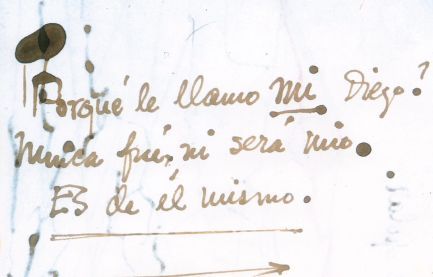 Porqué le llamo mi Diego?
Nunca fué, ni será mio.
Es de él mismo.